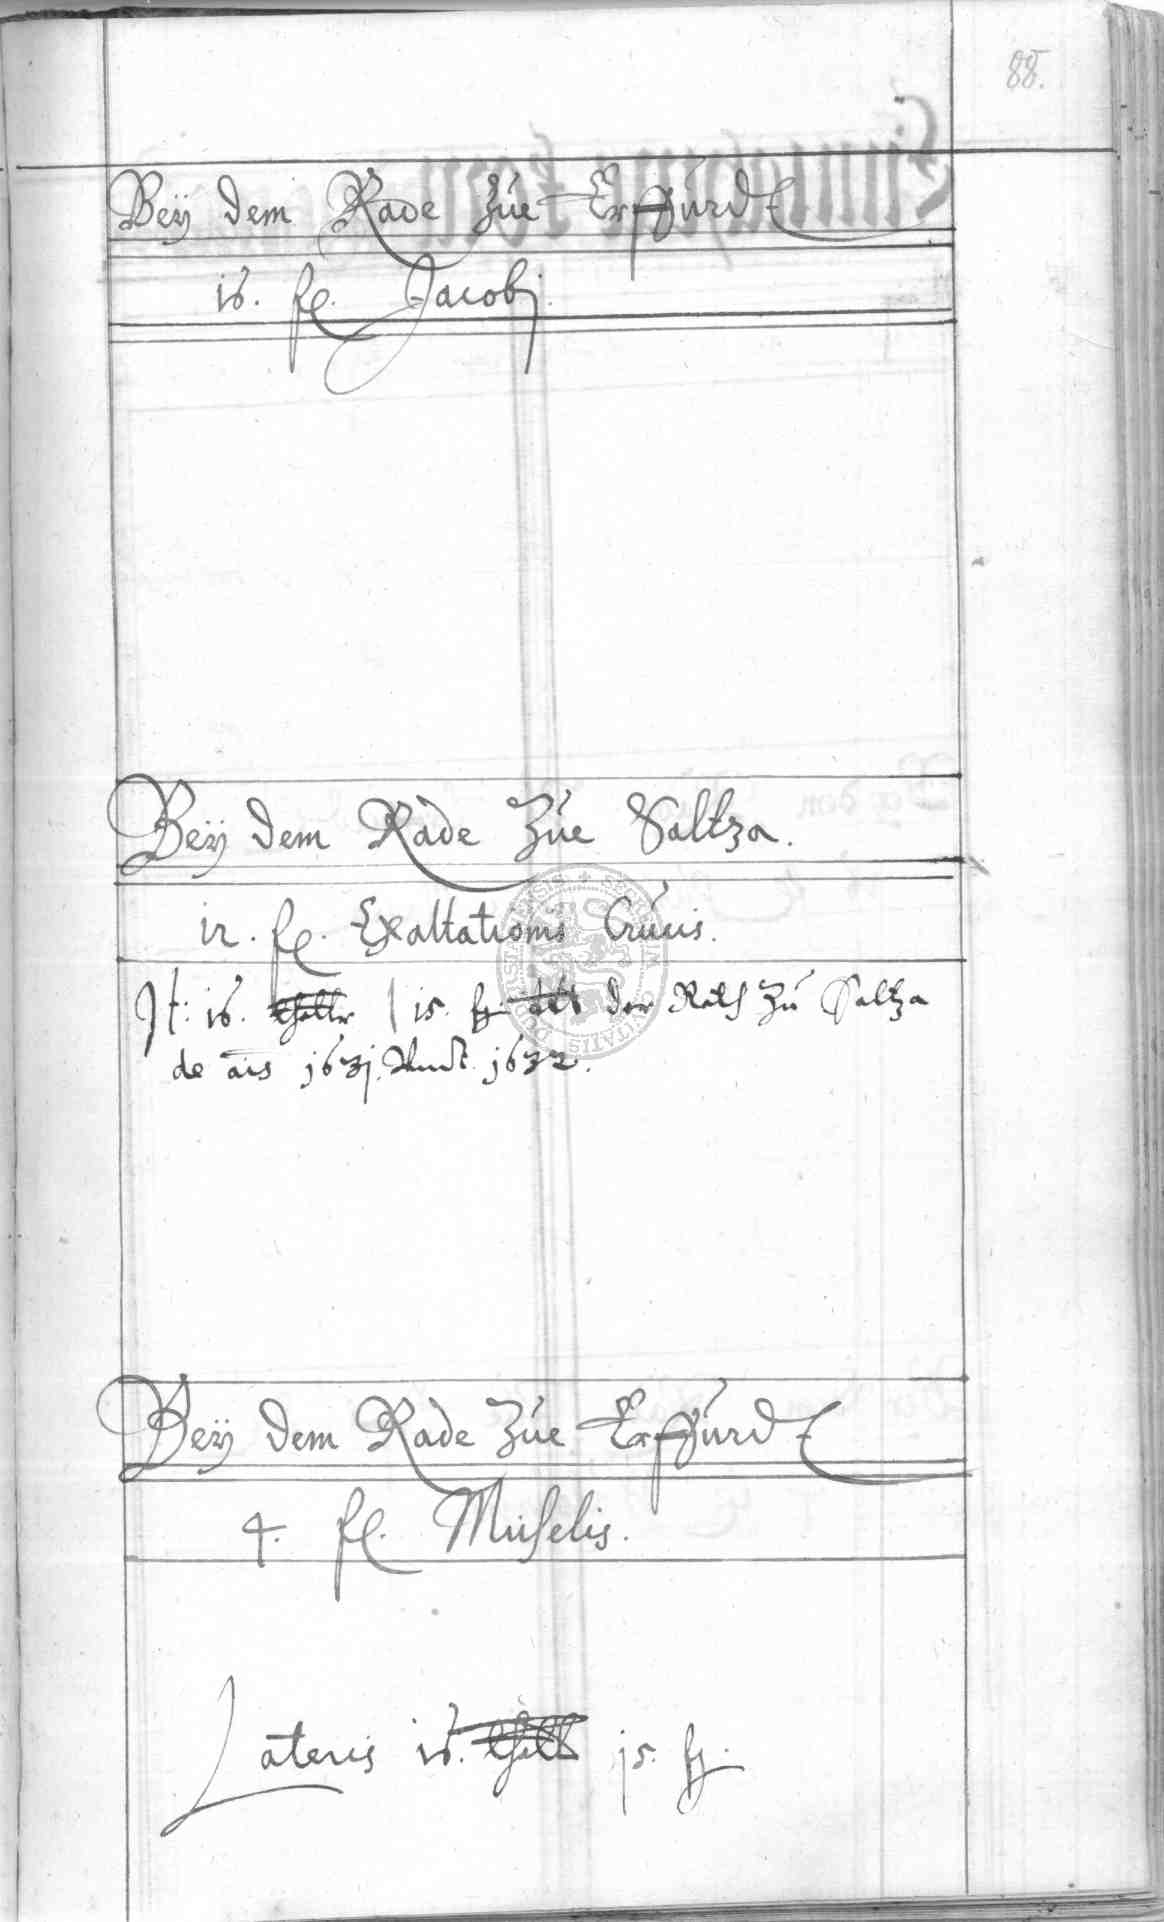 88.
Beÿ dem Rade Zue Erffurdt
16. fl. Jacobj.
Beÿ dem Rade Zue Saltza.
12. fl. Exaltationis Crucis.
It: 16. 15. der Rath Zu Saltza
de ais 1631. Undt 1632.
Beÿ dem Rade Zue Erffurdt
4. fl. Michelis.
Lateris 16. 15.